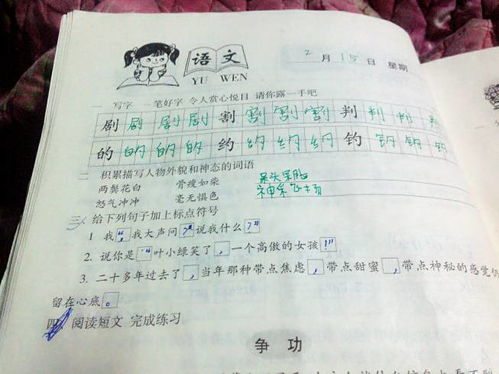 语文
YU WEN
2月15日 星期
一 写字 笔好字 令人赏心悦目 请你露一手吧
剧 剧 剧 剧 割 割 割 割 判 判 判
的 的 的 的 约 约 约 约 钓 钓 钓
二 积累描写人物外貌和神态的词语
两鬓花白 骨瘦如柴 呆头呆脑
怒气冲冲 毫无惧色 神采飞扬
三 给下列句子加上标点符号
1 我 我大声问 说我什么
2. 说你是 叶小绿笑了 , 一个高傲的女孩
3. 二十多年过去了 , 当年那种带点焦虑 , 带点甜蜜 , 带点神秘的感觉
留在心底 。
四 阅读短文 完成练习
争功